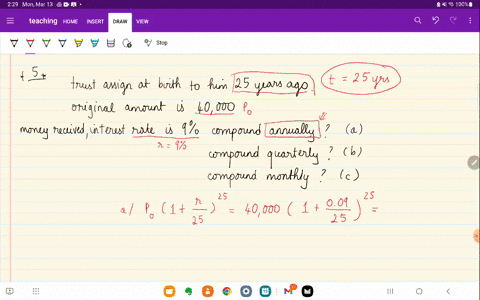 2:29 Mon, Mar 13
100%
teaching HOME INSERT DRAW VIEW
Stop
+ 5.
trust assign at birth to him 25 years ago. t = 25 yrs
original amount is 40,000 P₀
money received, interest rate is 9% compound annually? (a)
r = 9%
compound quarterly? (b)
compound monthly? (c)
a/ P₀ (1 + r/25)^25 = 40,000 (1 + 0.09/25)^25 =